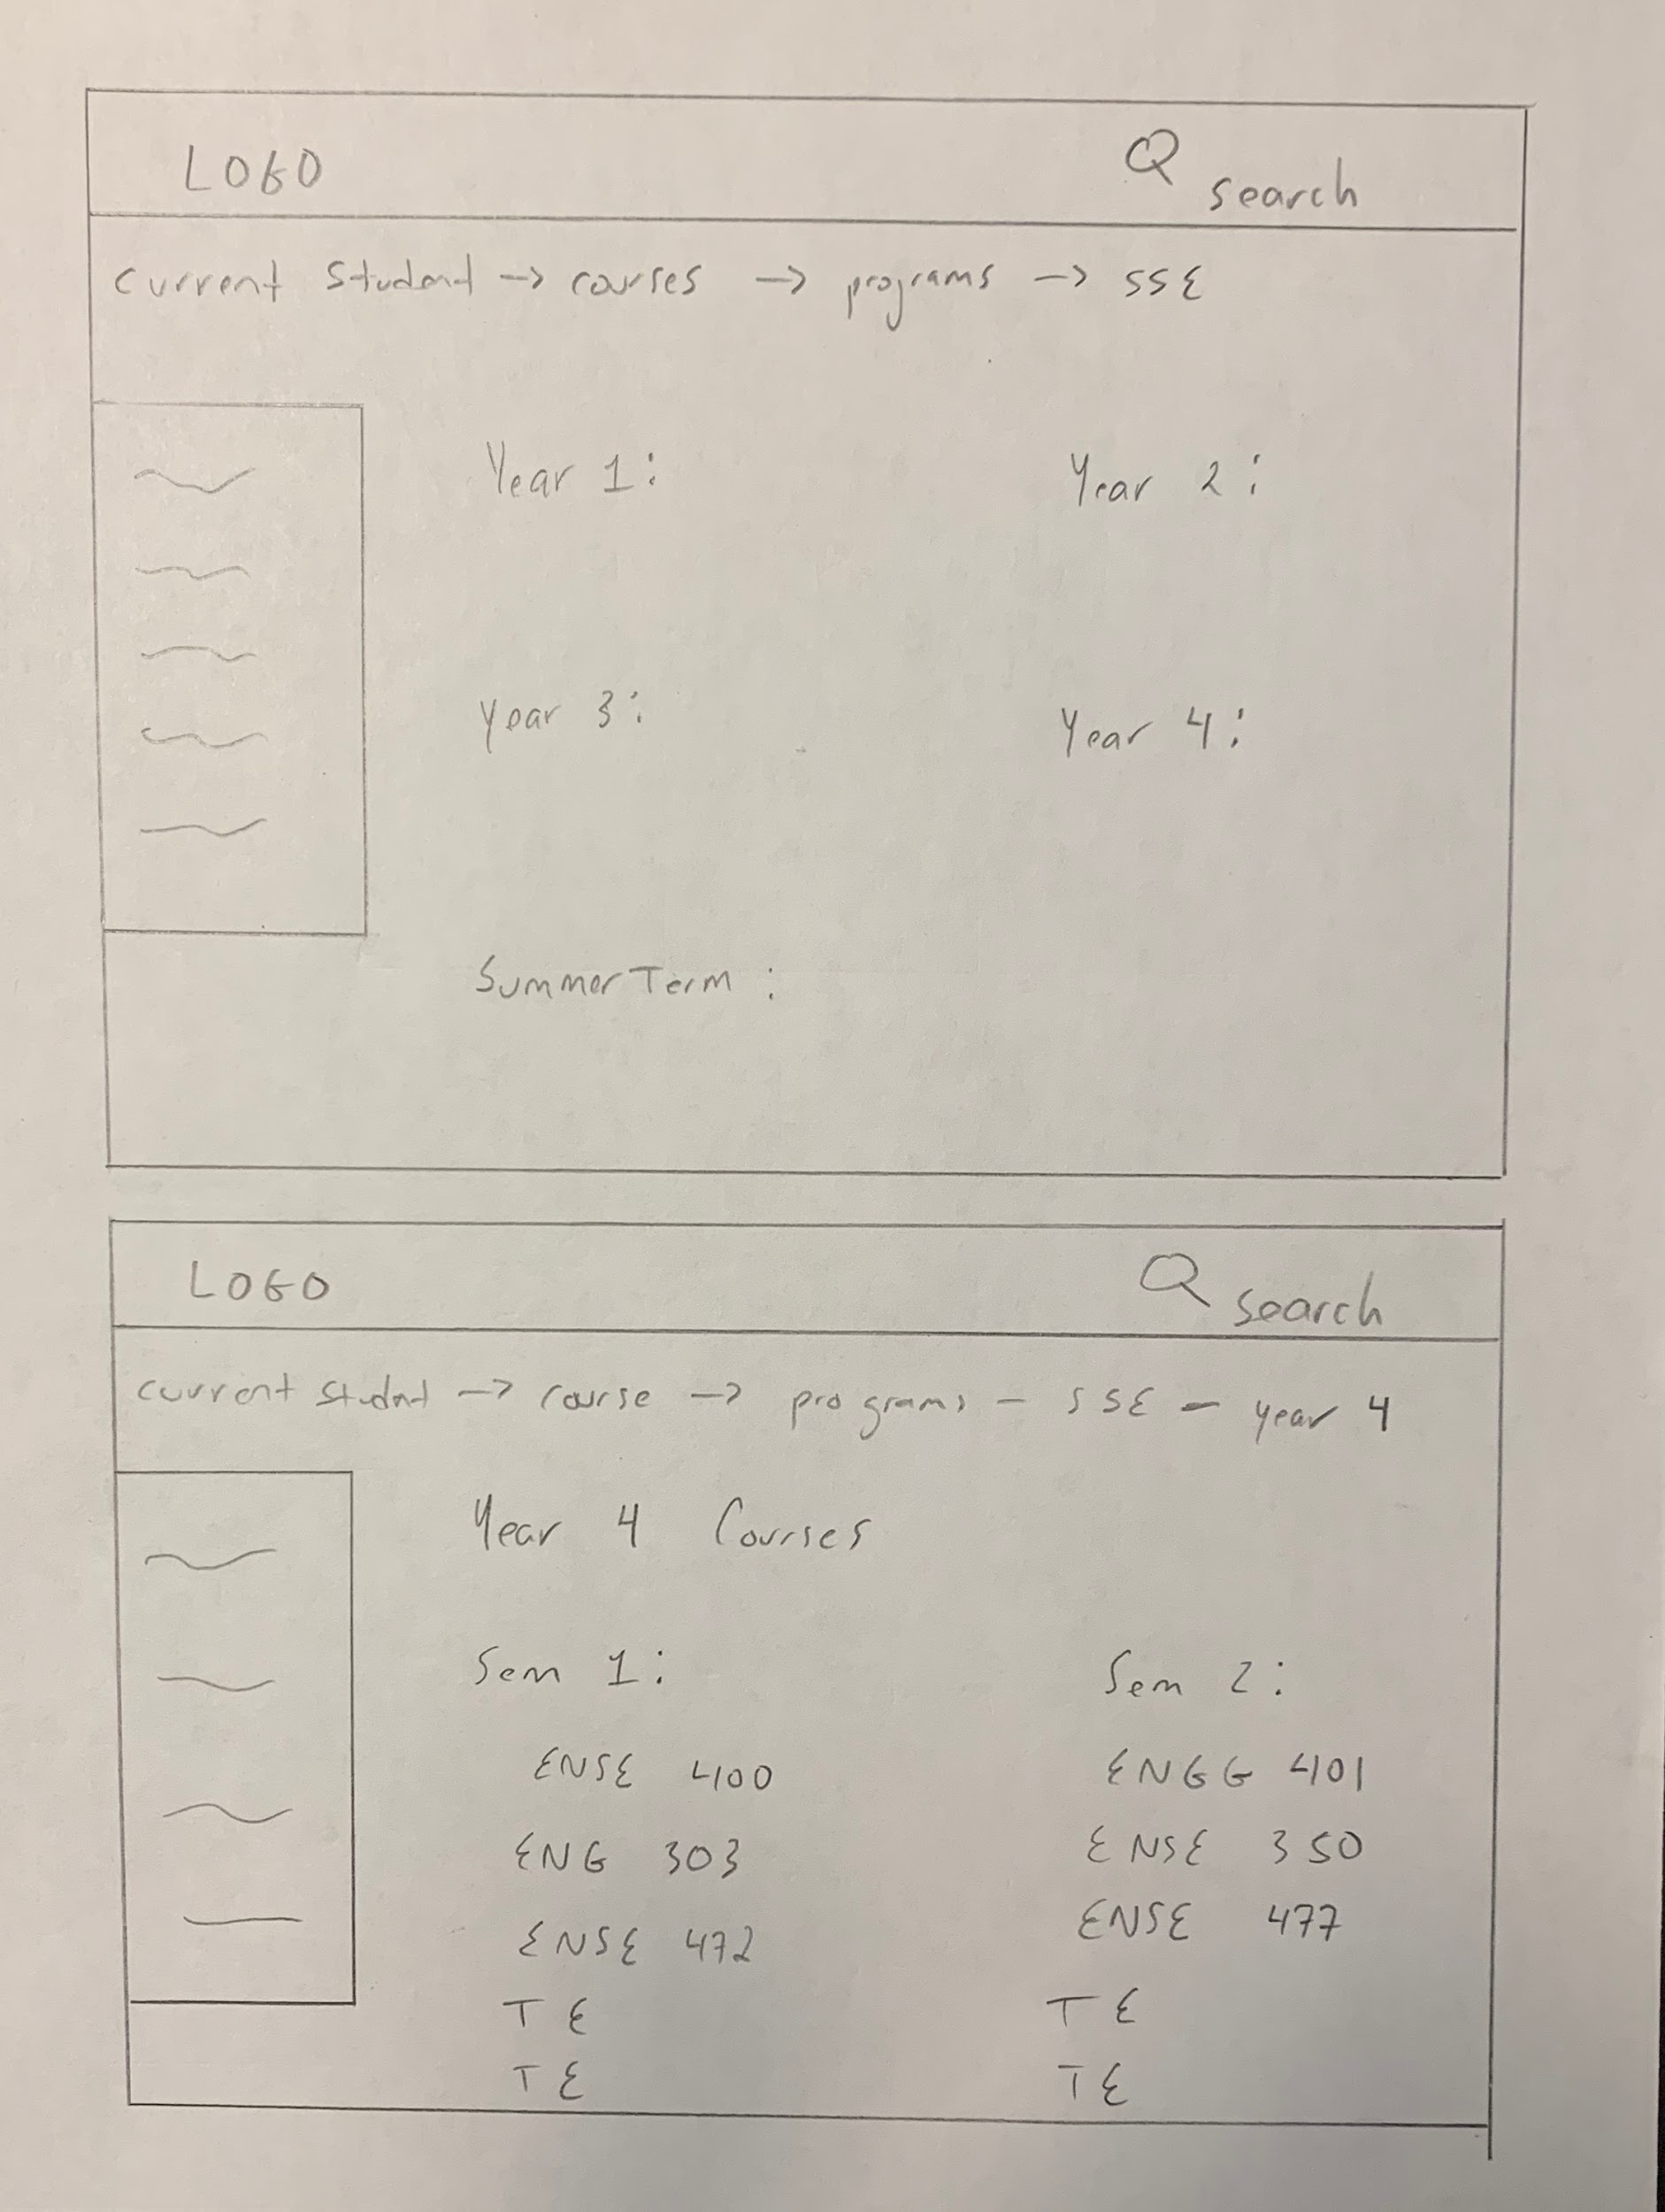 LOGO search
Current Student -> courses -> programs -> SSE
Year 1: Year 2:
Year 3: Year 4:
Summer Term :
LOGO search
Current Student -> course -> programs - SSE - year 4
Year 4 Courses
Sem 1: Sem 2:
ENSE 400 ENGG 401
ENG 303 ENSE 350
ENSE 472 ENSE 477
TE TE
TE TE